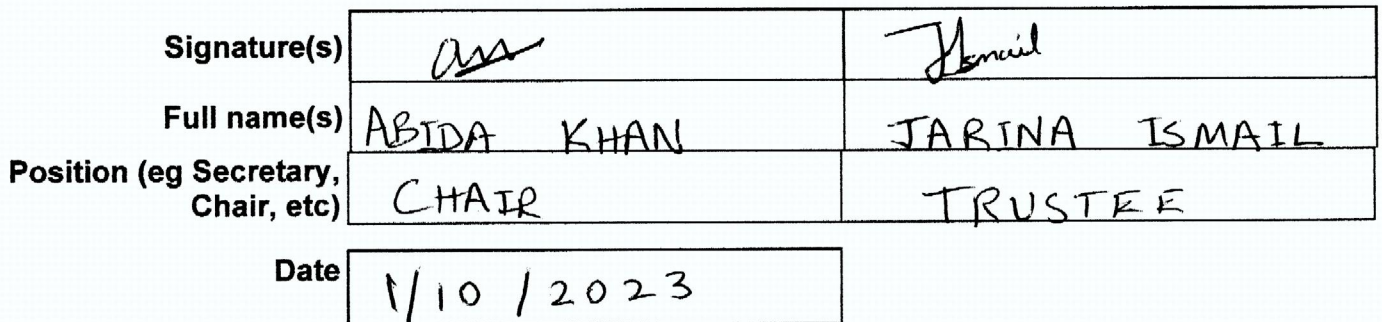 Signature(s) Ismail
Full name(s) ABIDA KHAN JARINA ISMAIL
Position (eg Secretary,
Chair, etc) CHAIR TRUSTEE
Date 1/10/2023